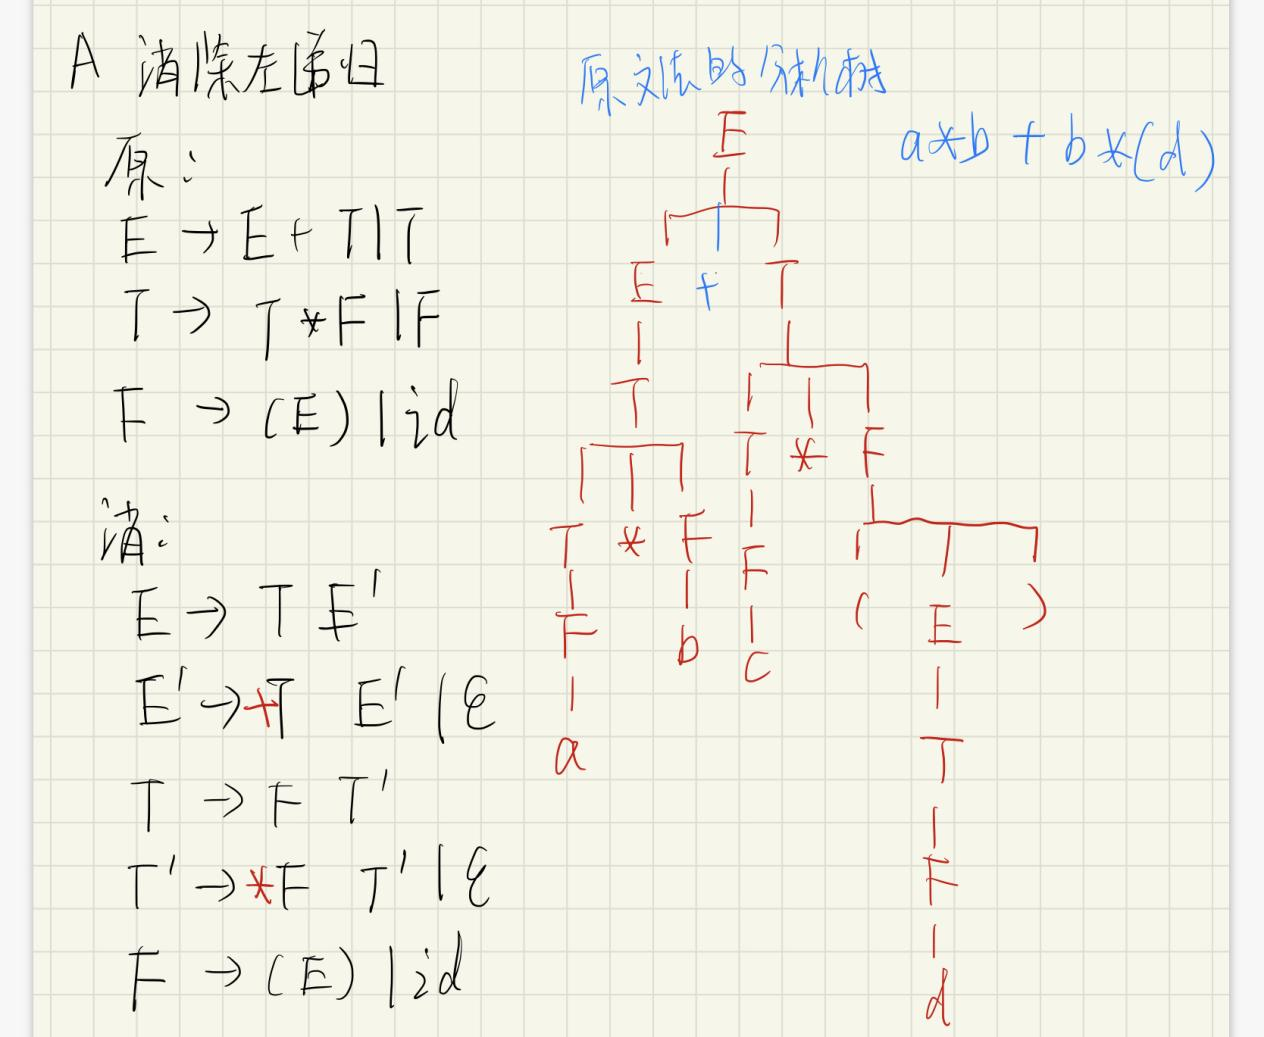 A 消除左递归
原：
E → E + T | T
T → T * F | F
F → (E) | id
消：
E → T E'
E' → +T E' | ε
T → F T'
T' → *F T' | ε
F → (E) | id
原文法的分析树
a*b + b*(d)
E
E + T
T
T * F
T * F
F b
F
( E )
a
c
T
F
d